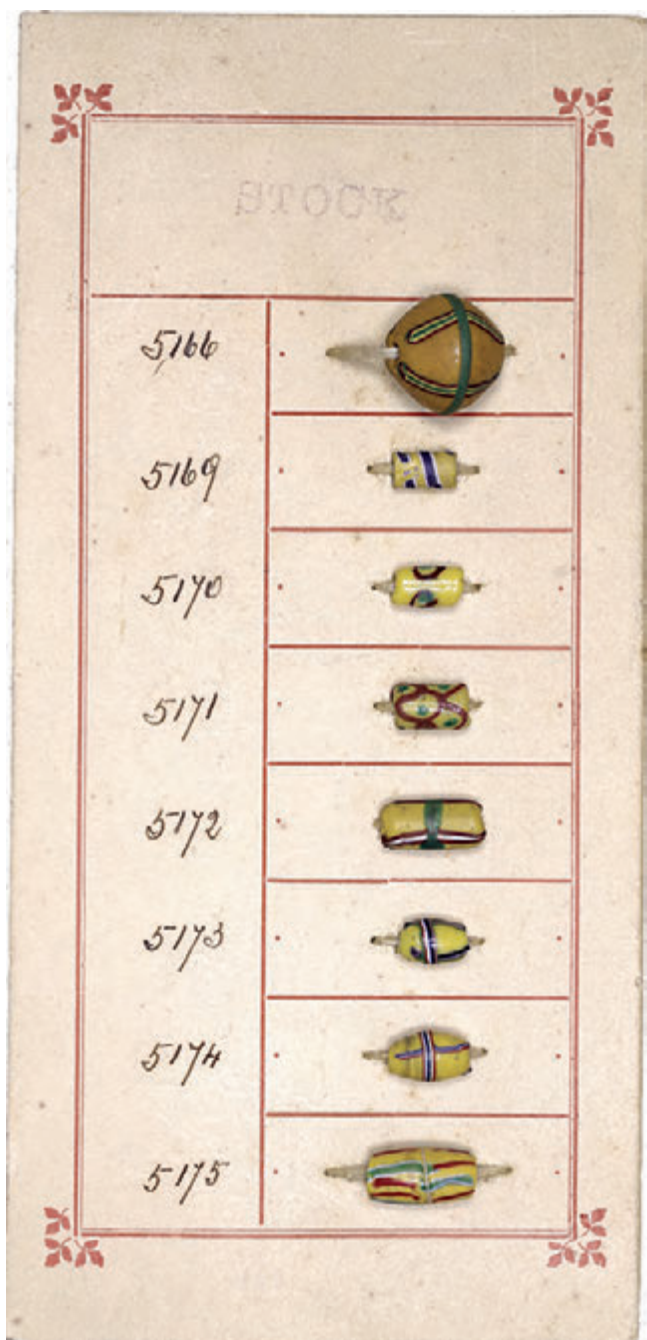 STOCK
5166
5169
5170
5171
5172
5173
5174
5175